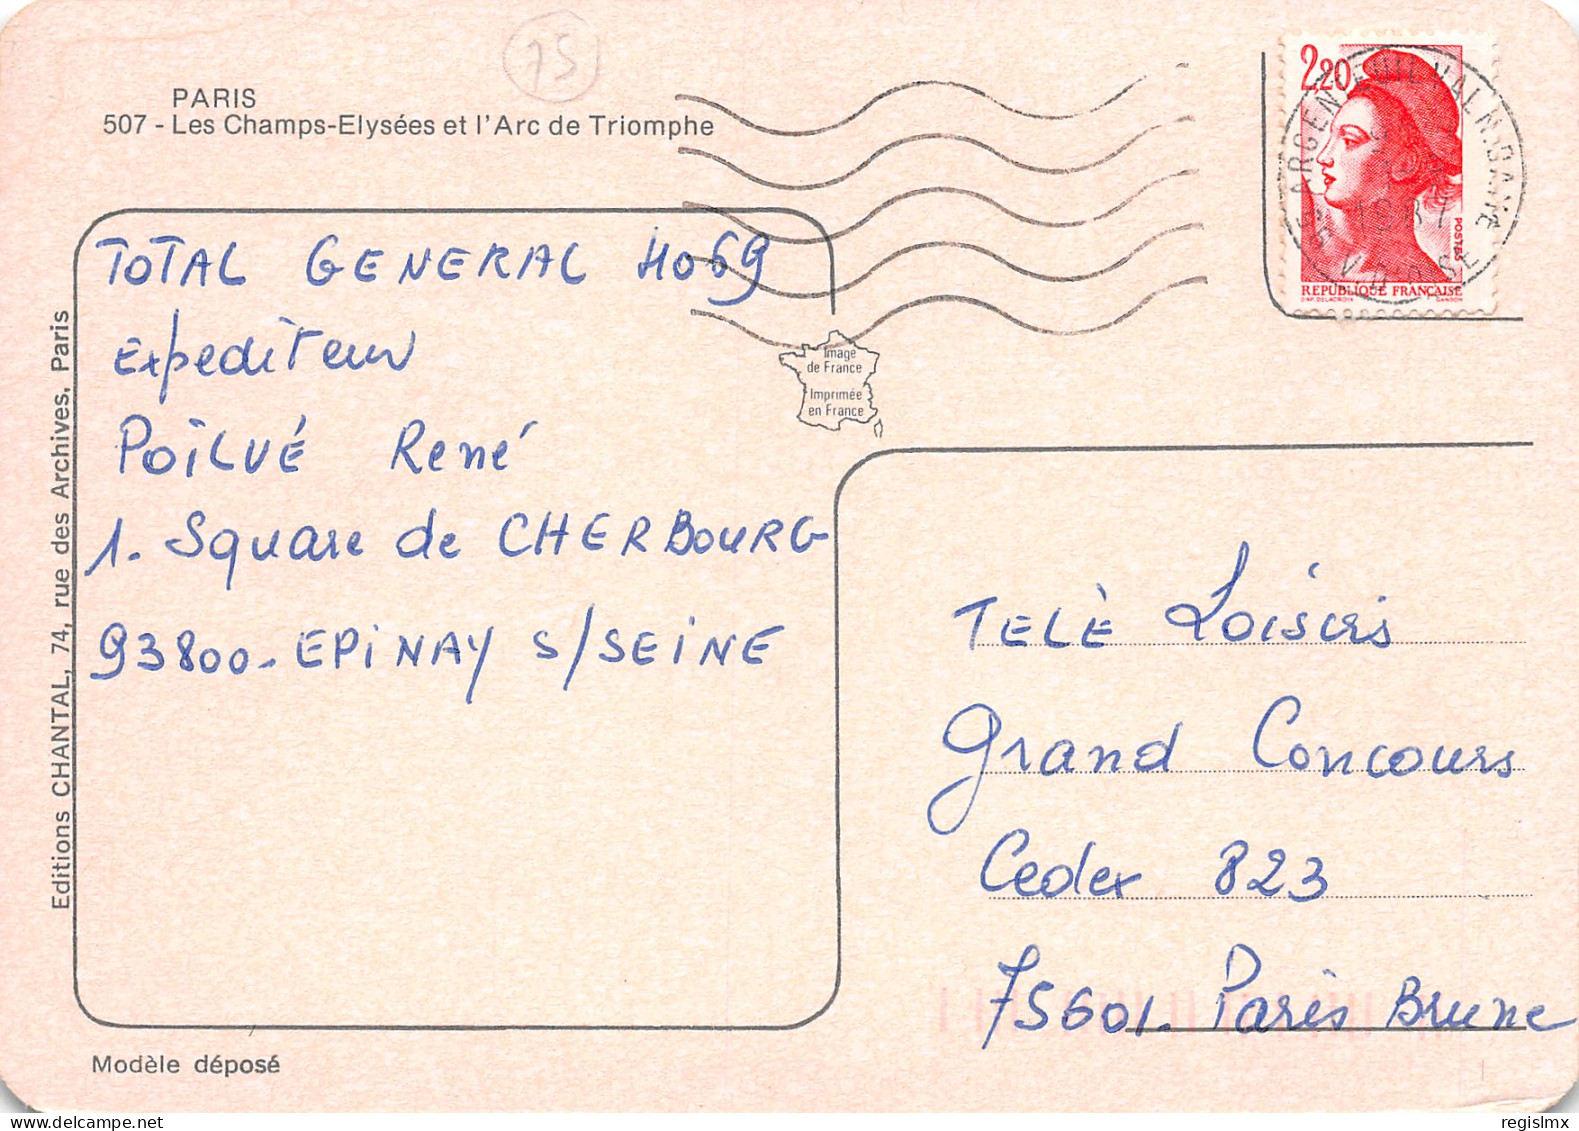 15
PARIS
507 - Les Champs-Elysées et l'Arc de Triomphe
2,20
POSTES
REPUBLIQUE FRANÇAISE
D'AP. DELACROIX GANDON
ARGENTEUIL VAL N.D.
1987
VAL D'OISE
TOTAL GENERAL 4069
Expediteur
POILVÉ René
1. Square de CHERBOURG
93800-EPINAY S/SEINE
Image
de France
Imprimée
en France
TELÈ Loisirs
Grand Concours
Cedex 823
75601. Paris Brune
Editions CHANTAL, 74, rue des Archives, Paris
Modèle déposé
regislmx